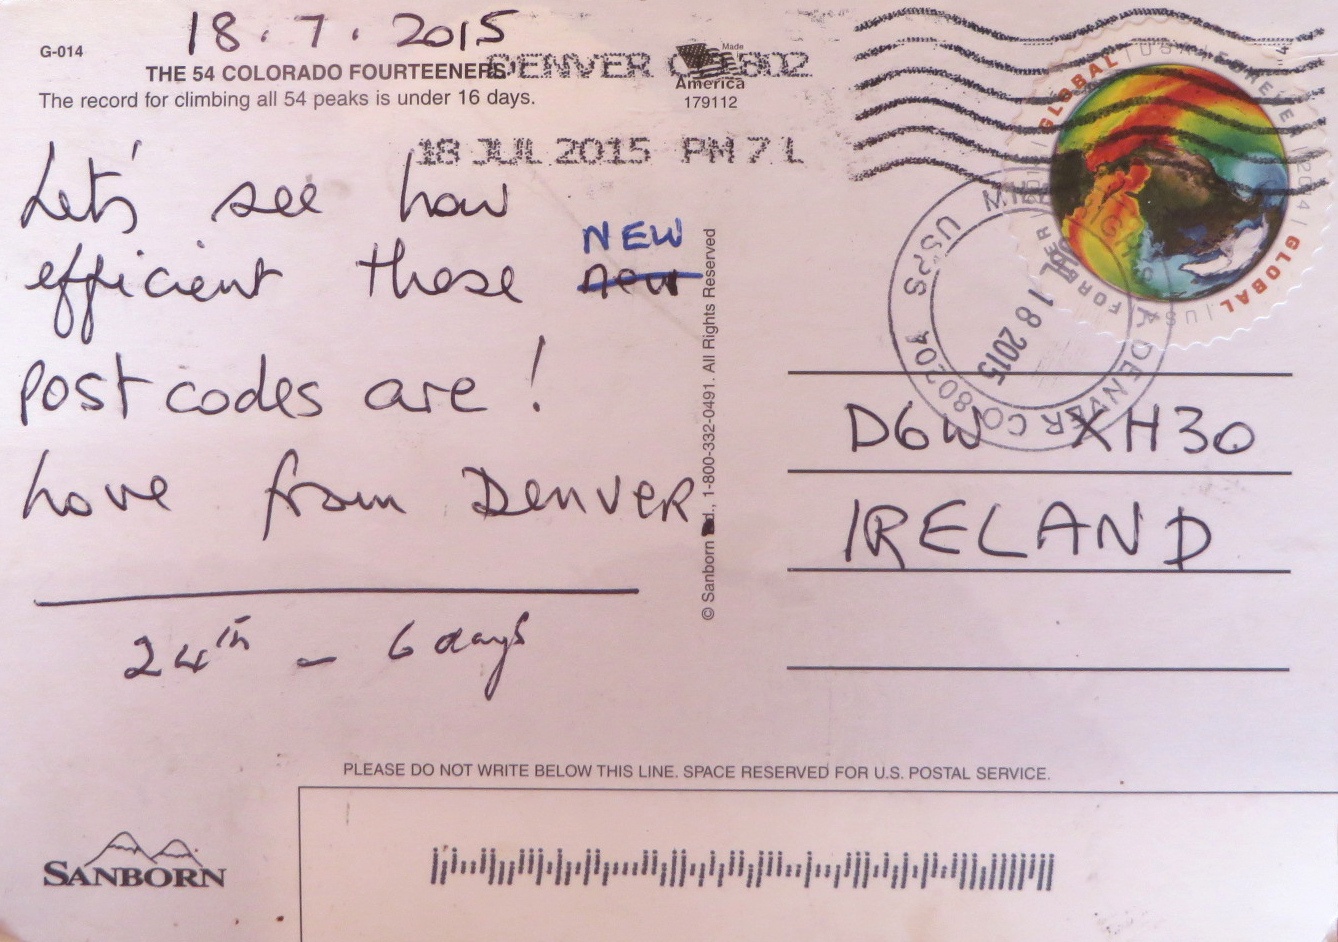 18.7.2015
G-014
THE 54 COLORADO FOURTEENERS
The record for climbing all 54 peaks is under 16 days.
Made
America
179112
DENVER 802
18 JUL 2015 PM 7 L
Let's see how
efficient these new NEW
postcodes are!
Love from Denver
24th - 6 days
© Sanborn Ltd., 1-800-332-0491. All Rights Reserved
GLOBAL | USA | FOREVER | 2014 | GLOBAL | USA | FOREVER
USPS DENVER CO 80201
JUL 18 2015
D6W XH30
IRELAND
PLEASE DO NOT WRITE BELOW THIS LINE. SPACE RESERVED FOR U.S. POSTAL SERVICE.
SANBORN